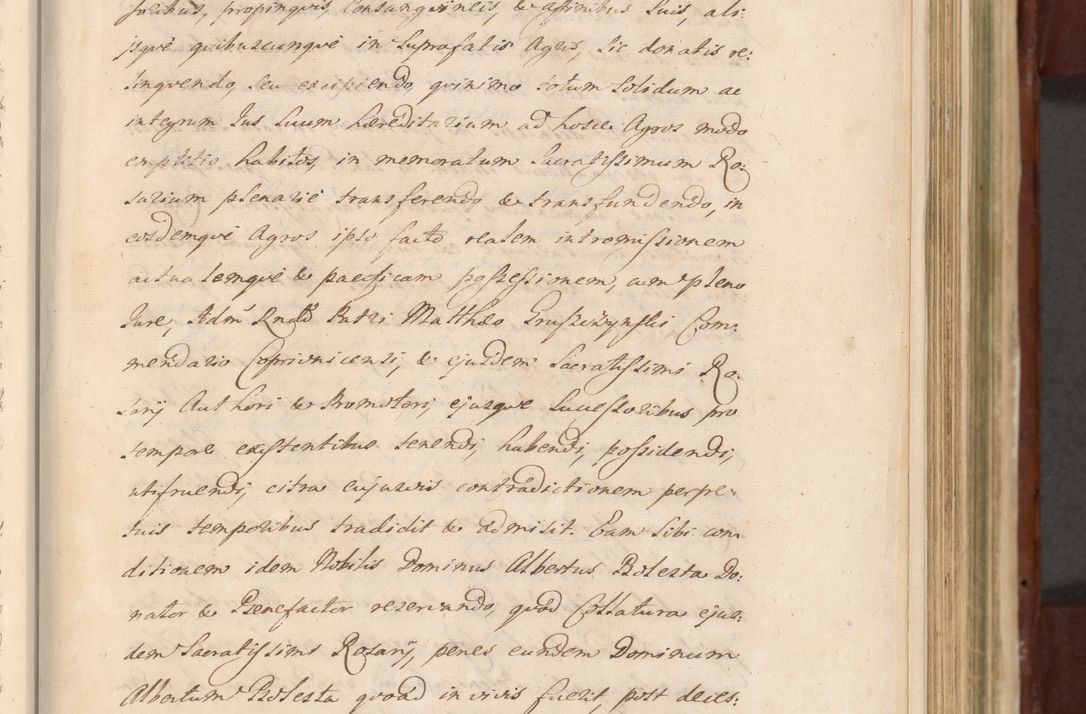 soribus, propinquis, Consanquineis, & affinibus suis, ali:
jsqvè quibuscunqvè in supra fatis Agris, sic donatis re:
linqvendo, seu excipiendo, quinimo totum solidum ac
integrum Jus suum hæreditarium ad hosce Agros modo
emptitio habitos, in memoratum Sacratissimum Ro:
sarium plenariè transferendo & transfundendo, in
eosdemqvè Agros ipso facto realem intromissionem
actualemqvè & pacificam possessionem, cum pleno
Jure, Adm Rndo Patri Matthæo Gruszczynski Com:
mendario Coprivnicensi, & ejusdem Sacratissimi Ro:
sarij Authori & Promotori, ejusqve Successoribus pro
tempore existentibus tenendi, habendi, possidendi,
utifruendi, citra cujusvis contradictionem perpe:
tuis temporibus tradidit & admisit. Eam sibi con
ditionem idem Nobilis Dominus Albertus Bolesta Do:
nator & Benefactor reservando, quòd Collatura ejus:
dem Sacratissimi Rosarij, penes eundem Dominum
Albertum Bolesta quoàd in vivis fuerit, post deces: